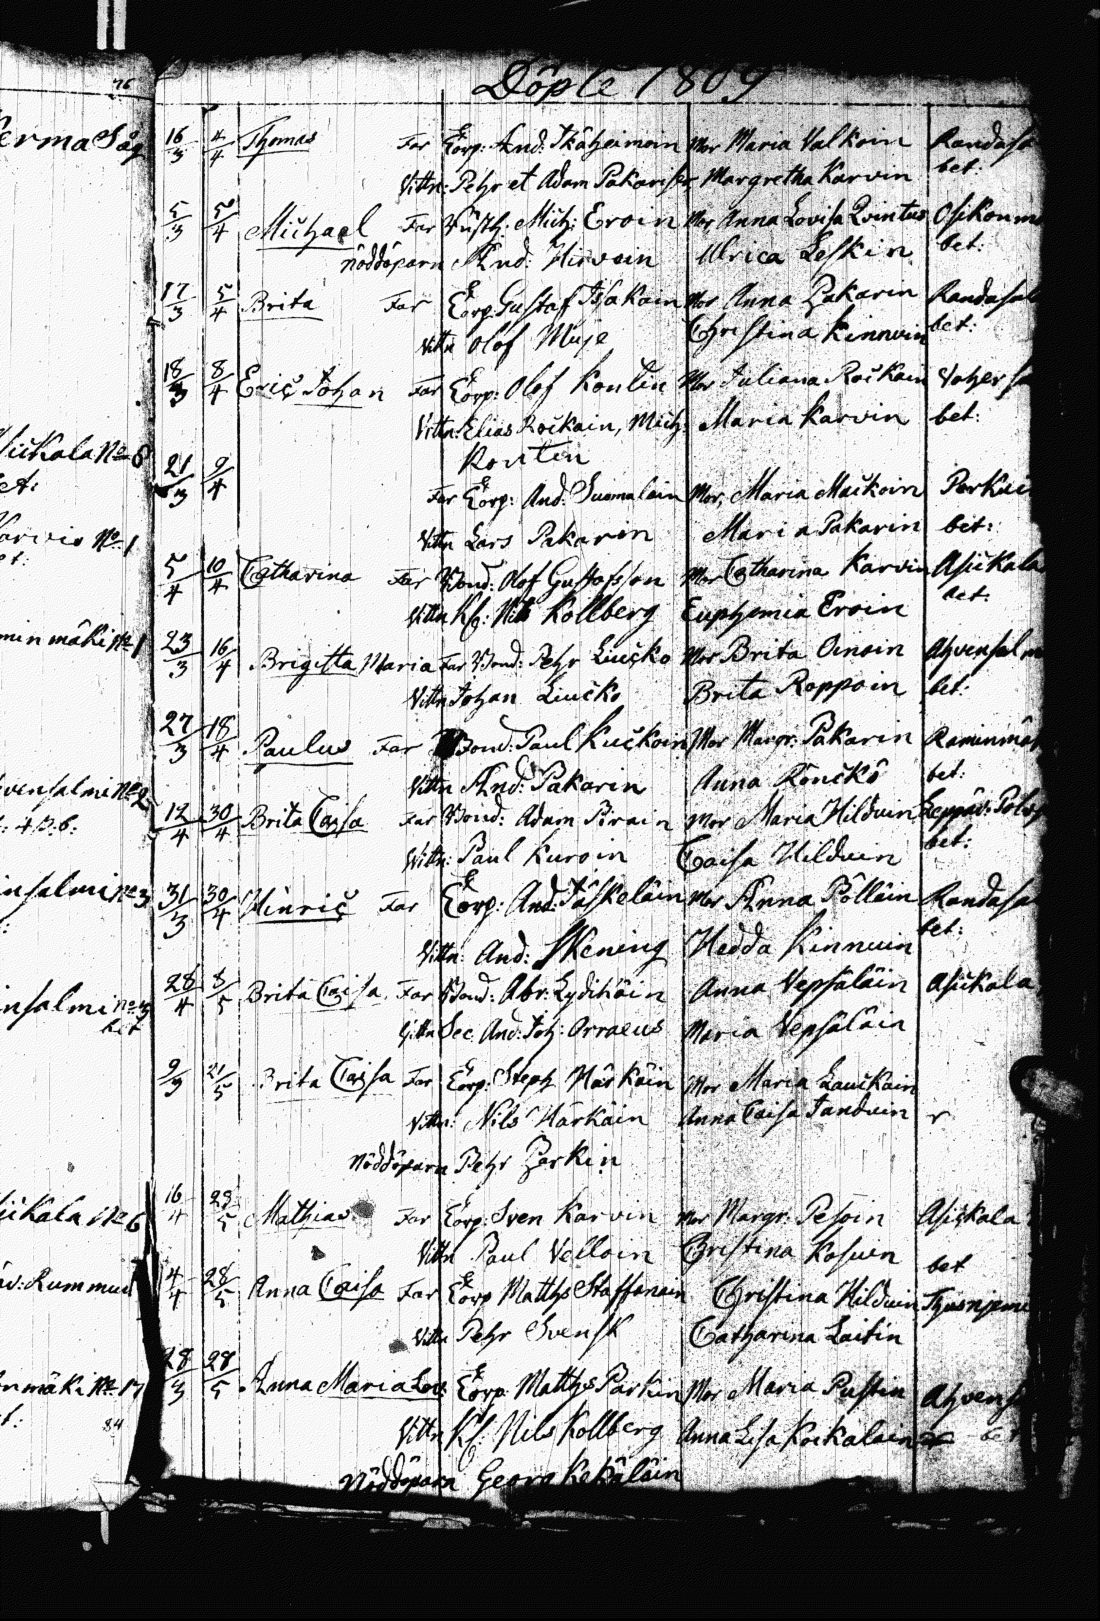 76
Döpte 1809
erma Såg 16/3 4/4 Thomas Far Torp: And: Ikäheimoin Mor Maria Valkoin Randasa
Vittn: Pehr et Adam Pakariner, Margretha Karvin bet:
5/3 5/4 Michael Far Mich: Eroin Mor, Anna Lovisa Qvintus Osikonm
Nöddöparn And: Hirvoin Ulrica Leskin bet:
17/3 5/4 Brita Far Torp: Gustaf Issakain Mor Anna Pakarin Randasal
Vittn Olof Muje Christina Kinnuin bet:
18/3 8/4 Eric Johan Far Torp: Olof Koulin Mor Juliana Rockain Vehersa
Vittn: Elias Rockain, Mich: Maria Karvin bet:
ickala No 6 Routin
21/3 9/4 Far Torp: And: Suomalain Mor, Maria Mackoin Porkui
Karvio No 1 Vittn Lars Pakarin Maria Pakarin bet:
5/4 10/4 Catharina Far Bond: Olof Gustafsson Mor Catharina Karvin Asickala
Vittn Kf: Nils Kollberg Euphemia Eroin bet:
minmäki No 1 23/3 16/4 Brigitta Maria Far Bond: Pehr Liucko Mor Brita Oinoin Ahvensalm
Vittn Johan Liucko Brita Roppoin bet:
27/3 18/4 Paulus Far Bond: Paul Kuckoin Mor Margr: Pakarin Raminmäk
vensalmi No 2 Vittn And: Pakarin Anna Rönckö bet:
12/4 30/4 Brita Caisa Far Bond: Adam Pirain Mor Maria Hilduin Leppäv: Polv
Vittn: Paul Kuroin Caisa Hilduin bet:
insalmi No 3 31/3 30/4 Hinric Far Torp: And: Jäskeläin Mor Anna Pölläin Randasa
Vittn: And: Skening Hedda Kinnuin bet:
28/4 8/5 Brita Caisa Far Bond: Abr: Lyditiäin Anna Vepsäläin Asickala
insalmi No 3 bet Vittn Sec. And: Joh: Orraeus Maria Vepsäläin
9/3 21/5 Brita Caisa Far Torp: Steph Härkäin Mor Maria Lauckain
Vittn: Nils Härkäin Anna Caisa Tanduin
Nöddöparn Pehr Parkin
ickala No 6 16/4 28/5 Mathias Far Torp: Sven Karvin Mor Margr: Pesoin Asickala
Vittn Paul Velloin Christina Kosuin bet
äv: Rummuk 4/4 28/5 Anna Caisa Far Torp Matths Staffanain Christina Hilduin
Vittn Pehr Svensk Catharina Laitin
nmäki No 17 28/3 28/5 Anna Maria Lovis Torp Matths Parkin Mor Maria Pustin Ahvens
84 Vittn Kf: Nils Kollberg Anna Lisa Koikalain
Nöddöparn Georg Kekäläin